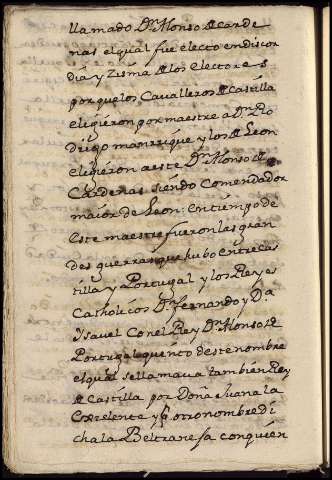 llamado Dn Alonso de carde
nas el qual fue electo en discor
dia y Zisma de los Electores
porque los Cavalleros de Castilla
eligieron por maestre a Dn Ro
drigo manrrique y los de Leon
eligieron a este Dn Alonso de
Cardenas siendo Comendador
maior de Leon: en tiempo de
este maestre fueron las gran
des guerras que hubo entre cas
tilla y Portugal y los Reyes
Catholicos Dn fernando y Da
Ysavel Con el Rey Dn Alonso de
Portugal quinto de este nombre
el qual se llamava tambien Rey
de Castilla por Doña Juana la
Exelente y por otro nombre di
cha la Beltranesa con quien